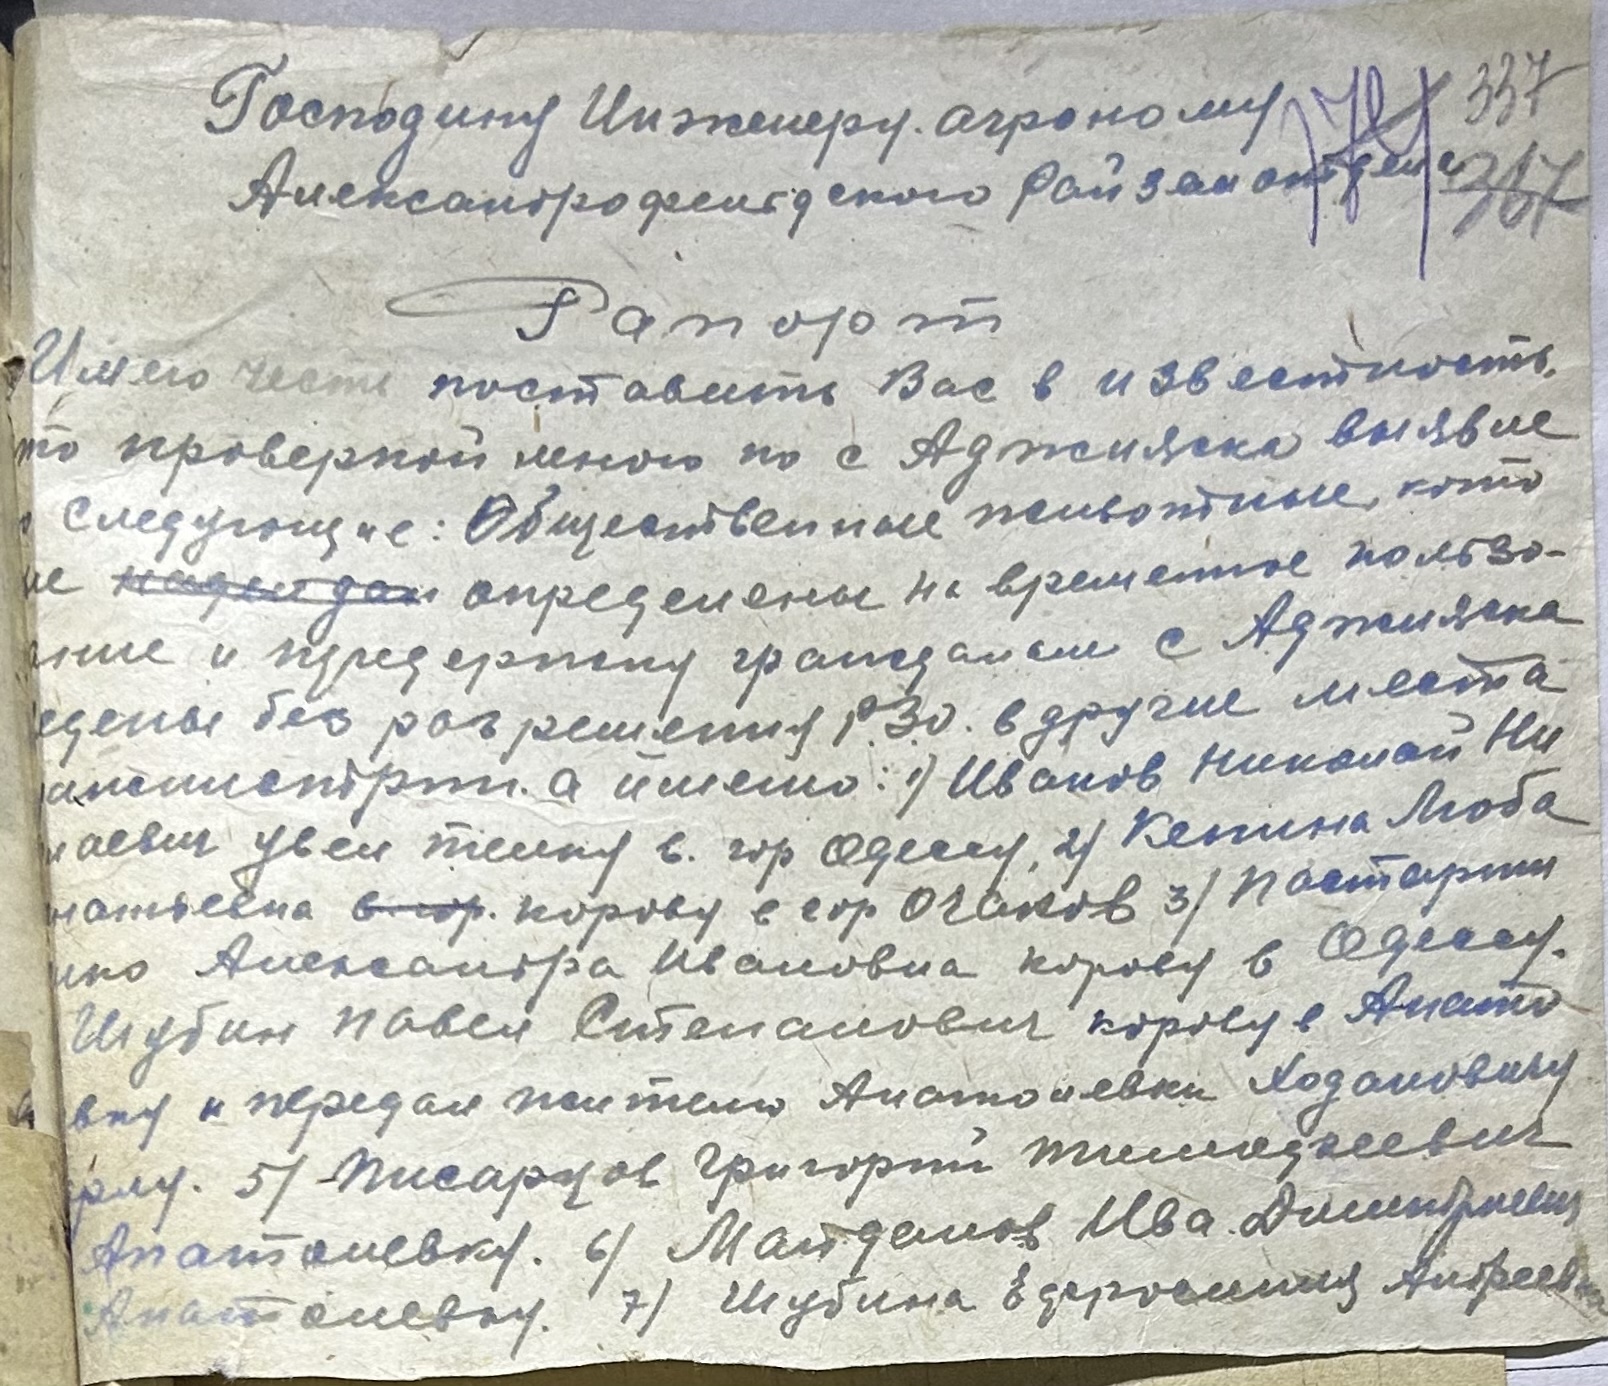 337
Господину Инженеру. агроному
Александрофельдского Райземотдела
317
Рапорт
Имею честь поставить Вас в известность,
то проверкой мною по с Аджияска выявле
следующие: Общественные животные, кото
ые определены на временное пользо-
ание и придержку гражданами с Аджияска
едены без разрешения РЗО. в другие места
а имено: 1) Иванов Николай Ни
лаевич увел телку в. гор Одессу, 2) Кенина Люба
натьевна в гор. корову в гор Очаков 3) Пастарни
енко Александра Ивановна корову в Одессу.
Шубин Павел Степанович корову в Анато
евку и передал жителю Анатолевки Ходановичу
5) Писарцов Григорий Тимофеевич
Анатолевку. 6) Майданов Ива. Димитриевич
Анатолевку. 7) Шубина Ефросиния Андреевна